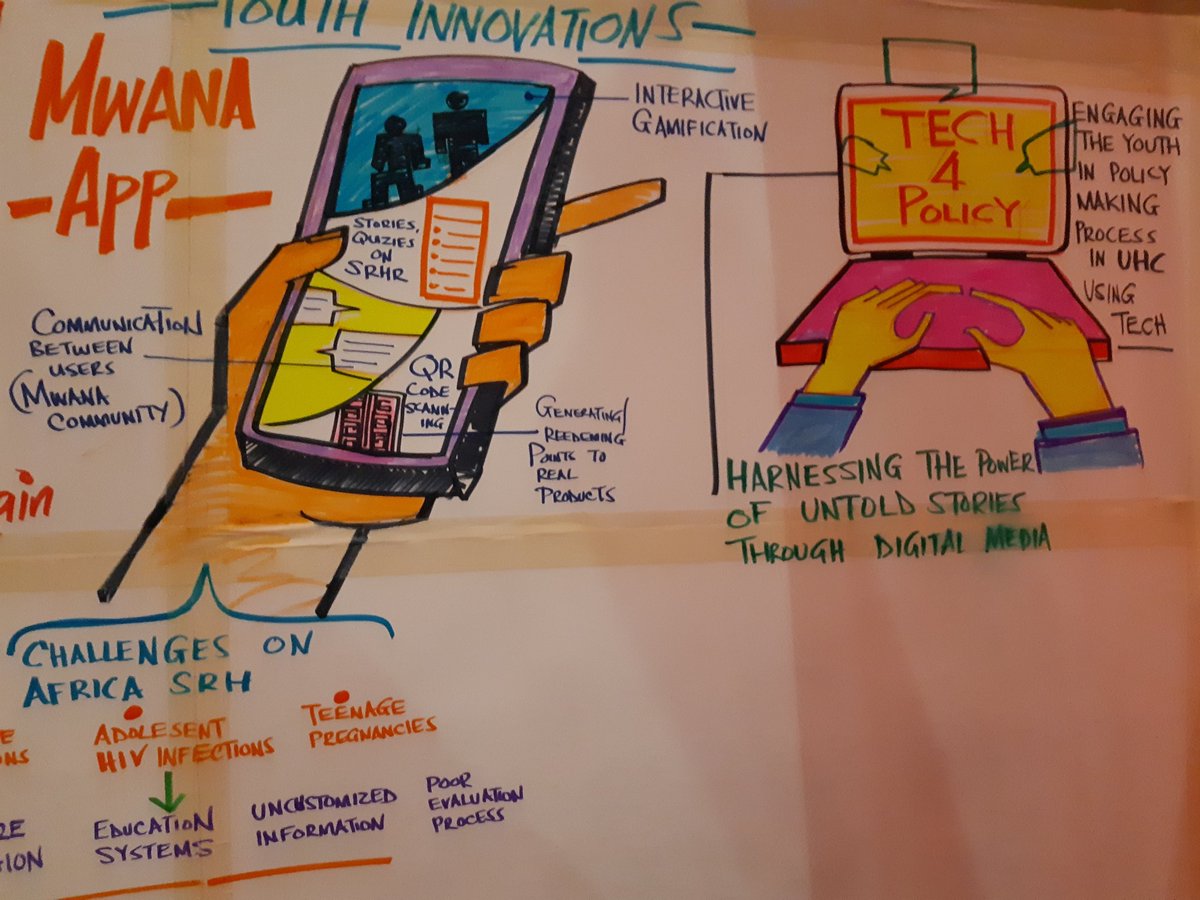 YOUTH INNOVATIONS
MWANA
APP
INTERACTIVE
GAMIFICATION
STORIES,
QUIZIES
ON
SRHR
COMMUNICATION
BETWEEN
USERS
(MWANA
COMMUNITY)
QR
CODE
SCANN-
ING
GENERATING/
REEDEMING
POINTS TO
REAL
PRODUCTS
TECH
4
POLICY
ENGAGING
THE YOUTH
IN POLICY
MAKING
PROCESS
IN UHC
USING
TECH
HARNESSING THE POWER
OF UNTOLD STORIES
THROUGH DIGITAL MEDIA
CHALLENGES ON
AFRICA SRH
ADOLESENT
HIV INFECTIONS
TEENAGE
PREGNANCIES
EDUCATION
SYSTEMS
UNCUSTOMIZED
INFORMATION
POOR
EVALUATION
PROCESS